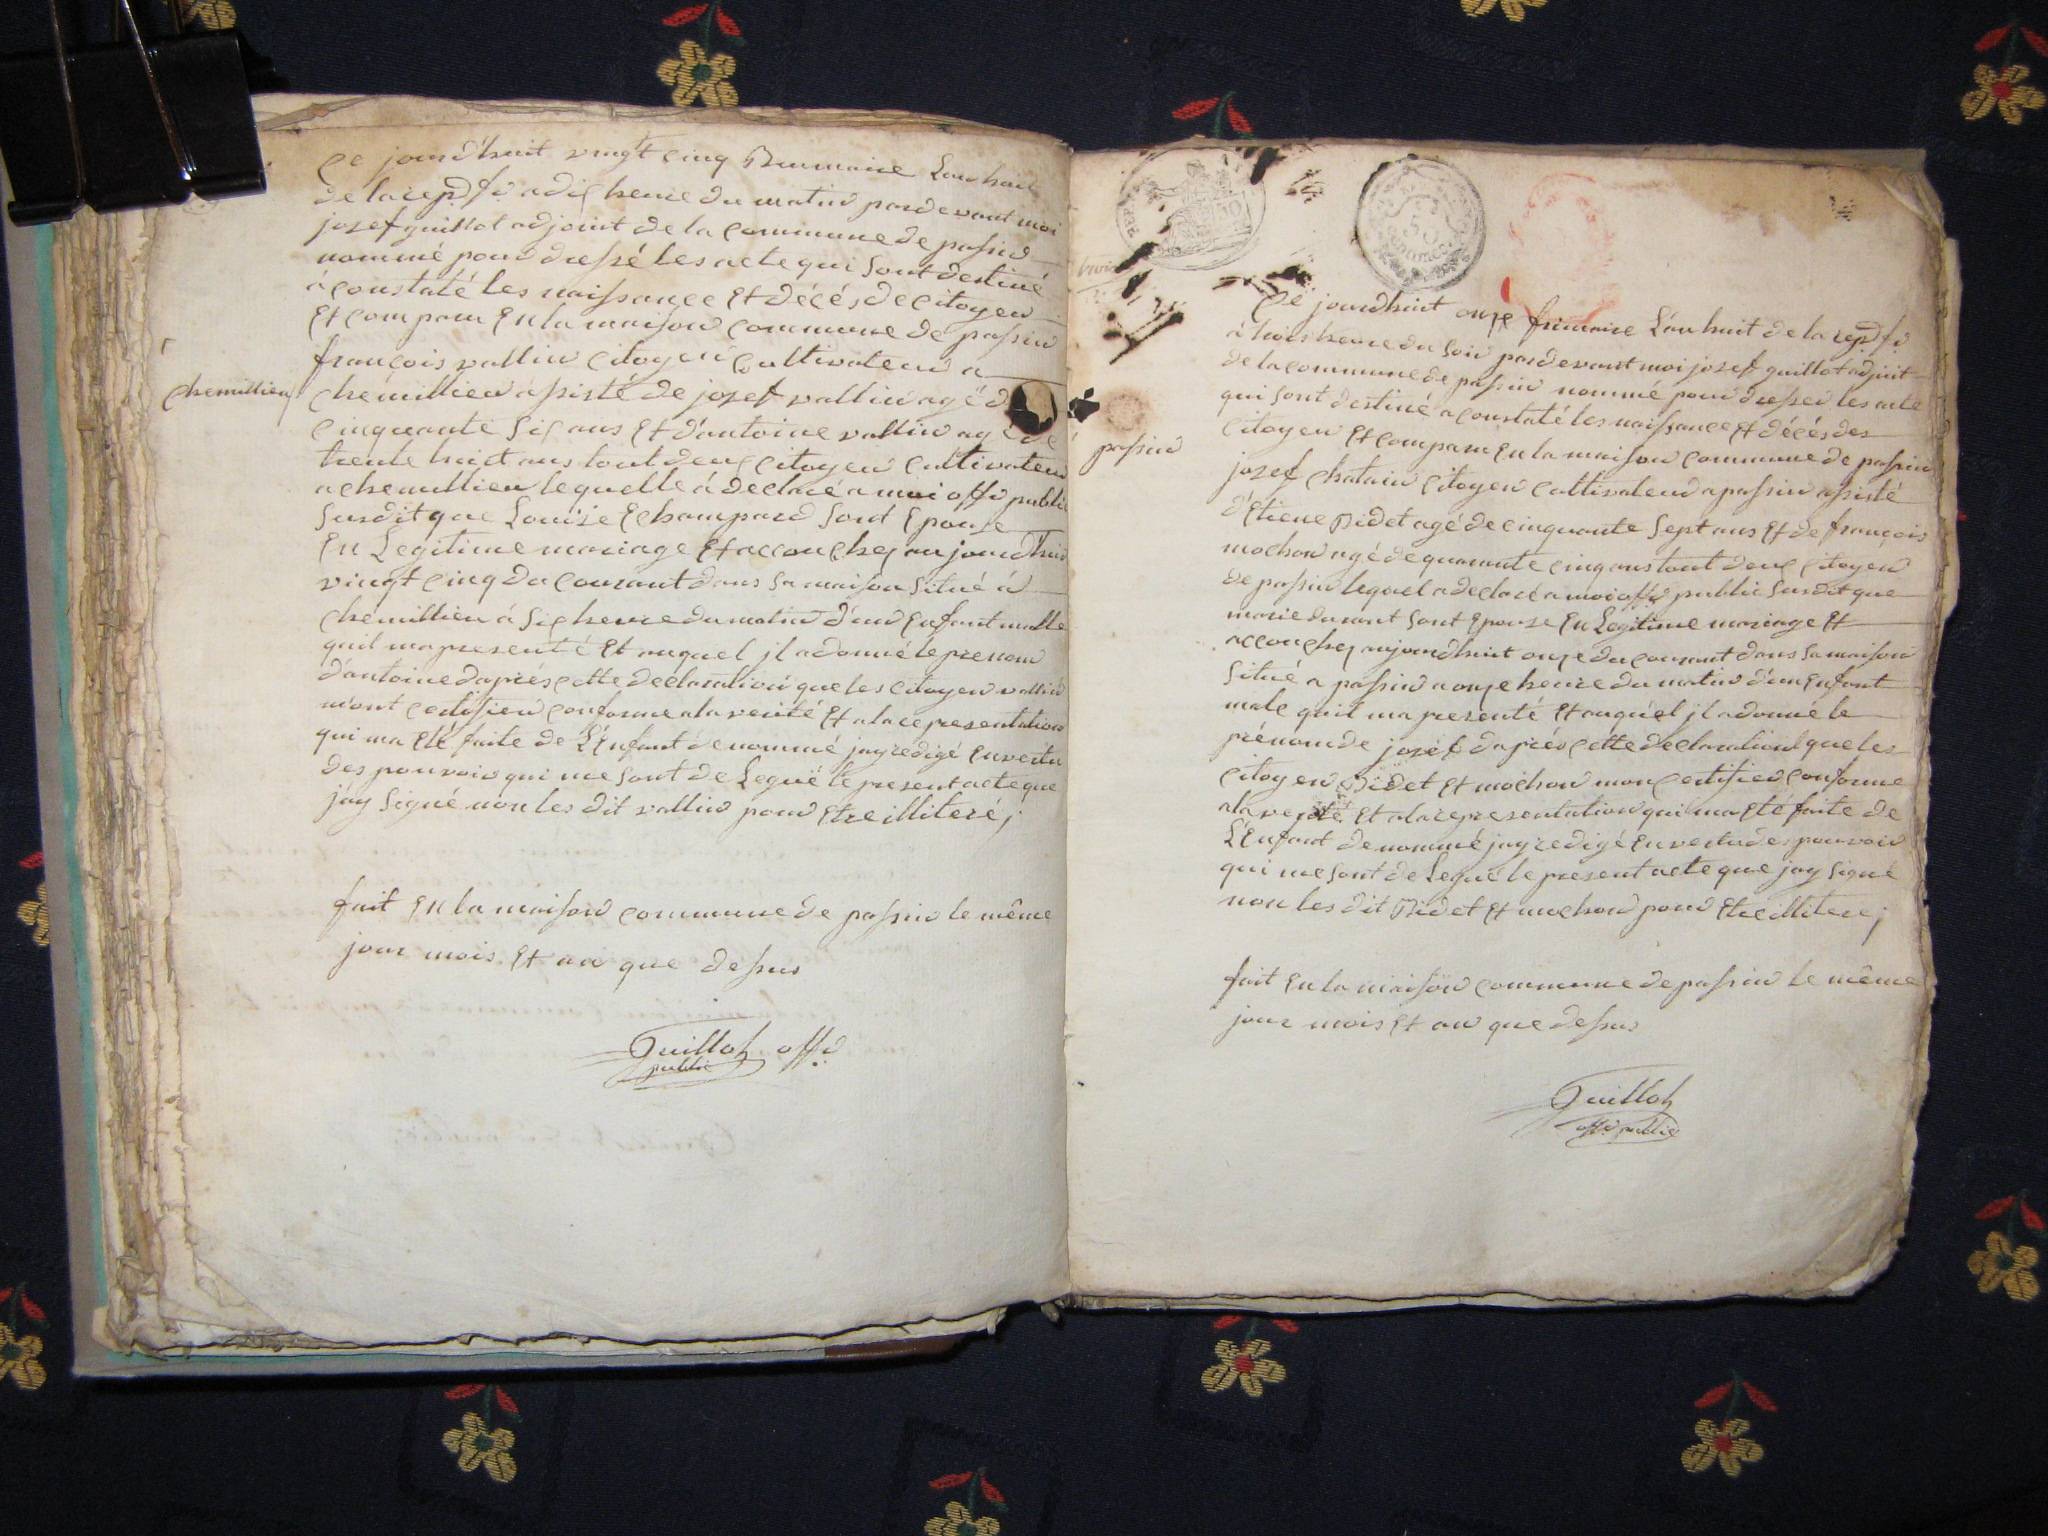 Ce jourd'huit vingt cinq Brumaire Lan huit
de la repd fr a dix heure du matin pardevant moi
josef guillot adjoint de la commune de passin
nommé pour dressé les acte qui sont destiné
à constaté les naissance Et décés de citoyen
Et compara En la maison commune de passin
françois vallin citoyen cultivateur a
chemillieu
chémillieu assisté de josef vallin agé d
cinquante six ans Et d'antoine vallin agé de
trente huit ans tout deux citoyen cultivateur
a chemillieu lequelle à déclaré a moi offr public
susdit que Louise Champard sont Epouse
En Legitime mariage Et accouchez aujourdhuit
vingt cinq du courant dans sa maison situé à
chémillieu à six heure du matin d'un Enfant malle
quil ma presenté Et auquel jl a donné le prenom
d'antoine daprés cette declaration que les citoyen vallin
m'ont certifier conforme a la verité Et a la representation
qui ma Eté faite de L'Enfant denommé jay redigé En vertu
des pouvoir qui me sont delegué le present acte que
j'ay signé non les dit vallin pour Etre illiteré j
fait En la maison commune de passin le même
jour mois Et an que dessus
Guillot offr
public
REP
50
50
CENTIMES
passin
Ce jourdhuit onze frimaire L'an huit de la repd fr
à trois heure du soir pardevant moi josef guillot adjoit
de la commune de passin nommé pour dresser les acte
qui sont destiné a constaté les naissance Et décés des
citoyen Et compara En la maison commune de passin
josef chatain citoyen cultivateur a passin assisté
d'Etiene Bidet agé de cinquante sept ans Et de françois
mochon agé de quarante cinq ans tout deux citoyen
de passin lequel a declaré a moi offr public susdit que
marie durant sont Epouse En Legitime mariage Et
accouchez aujourdhuit onze du courant dans sa maison
situé a passin a onze heure du matin d'un Enfant
male quil ma presenté Et auquel jl a donné le
prénom de joséf daprés cette declaration que les
citoyen Bidet Et mochon mon certifier conforme
a la verité Et a la representation qui ma Eté faite de
L'Enfant denommé jay redigé En vertu des pouvoir
qui me sont delegué le present acte que jay signé
non les dit Bidet Et mochon pour Etre illiteré j
fait En la maison commune de passin le même
jour mois Et an que dessus
Guillot
offr public